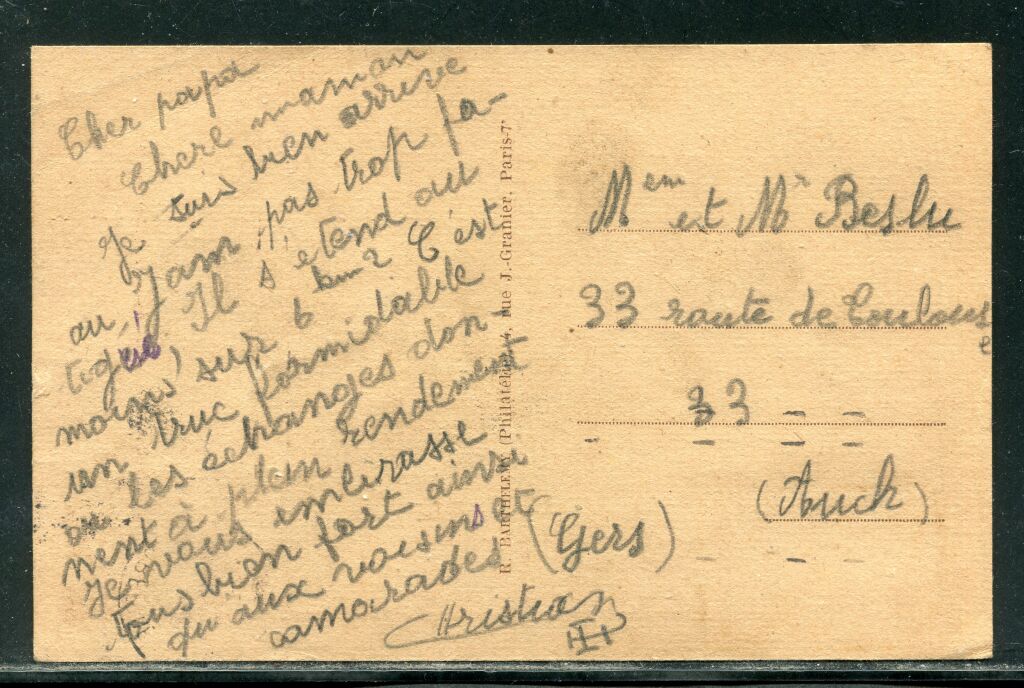 Cher papa
Chere maman
Je suis bien arrive
au Jam, pas trop fa-
tigé, Il s'etend au
moins sur 6 km2 C'est
un truc formidable
ou les échanges don-
nent à plein rendement
Je vous embrasse
tous bien fort ainsi
qu'aux voisins et
camarades
Christian
R. BARTHELEMY (Philatélie), rue J.-Granier, Paris-7e
Mem et Mr Beslu
33 route de Toulouse
33
(Auch)
(Gers)